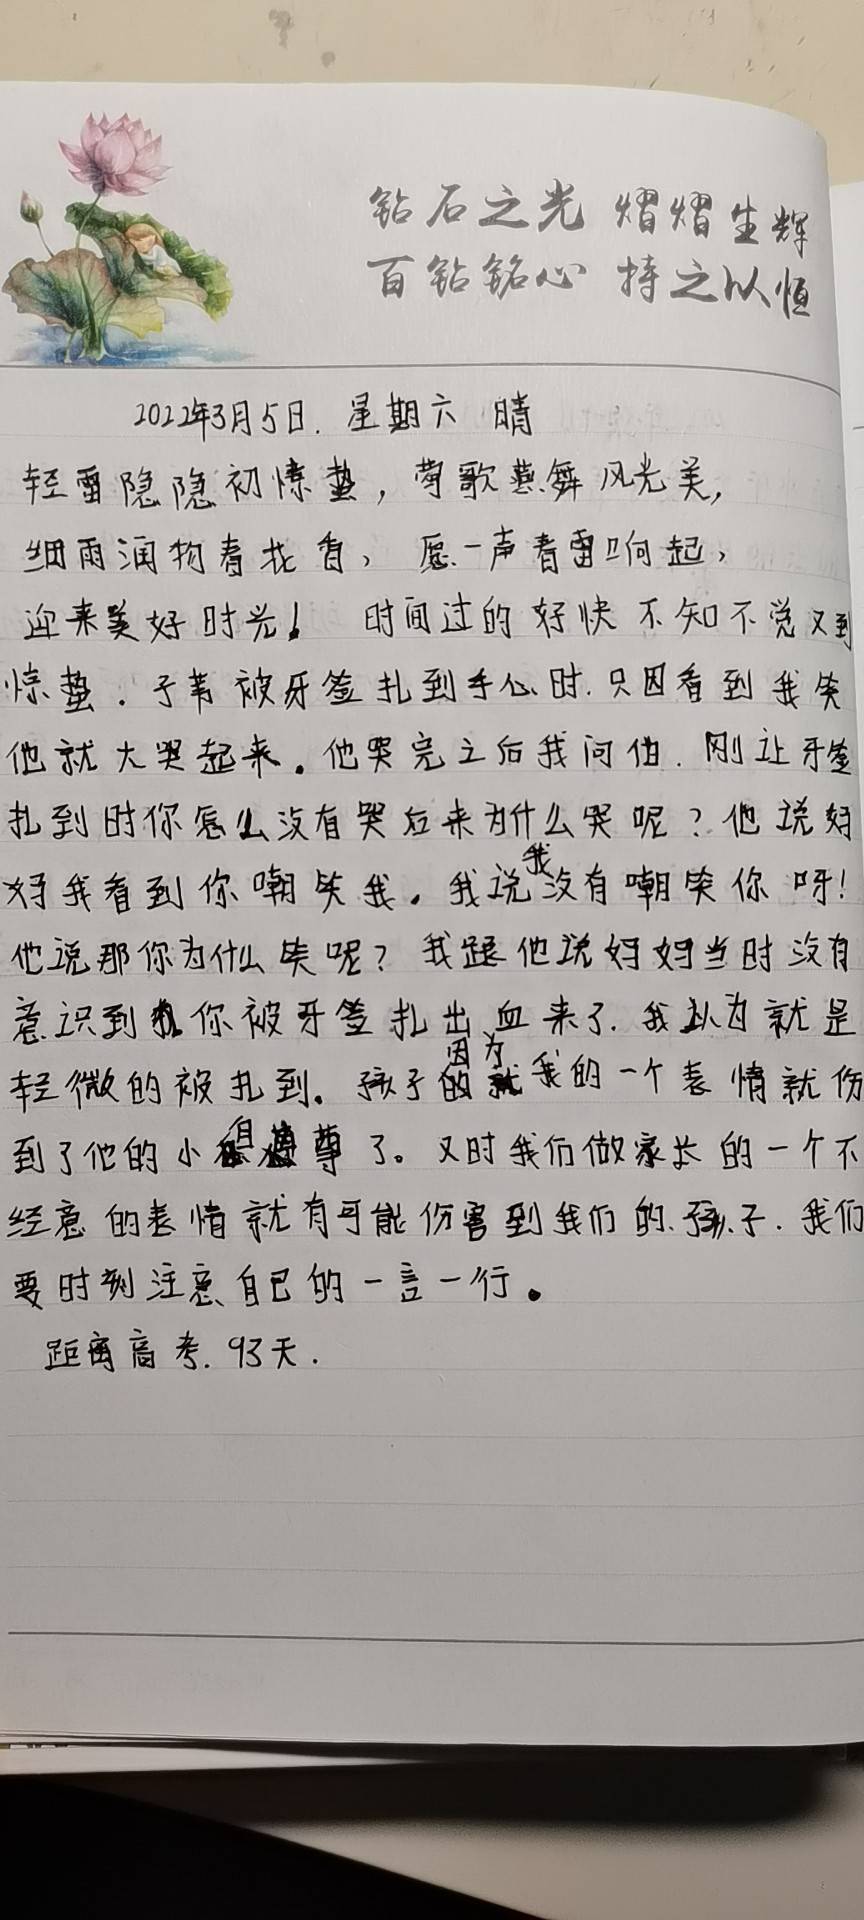 钻石之光 熠熠生辉
百钻铭心 持之以恒
2022年3月5日. 星期六 晴
轻雷隐隐初惊蛰，莺歌燕舞风光美，
细雨润物春花香，愿一声春雷响起，
迎来美好时光！ 时间过的好快不知不觉又到
惊蛰．子苇被牙签扎到手心时.只因看到我笑
他就大哭起来。他哭完之后我问他.刚让牙签
扎到时你怎么没有哭后来为什么哭呢？他说妈
妈我看到你嘲笑我。我说我没有嘲笑你呀！
他说那你为什么笑呢？我跟他说妈妈当时没有
意识到你被牙签扎出血来了.我认为就是
轻微的被扎到。孩子的因为我的一个表情就伤
到了他的小自尊了。又时我们做家长的一个不
经意的表情就有可能伤害到我们的孩子.我们
要时刻注意自己的一言一行。
距离高考.93天.